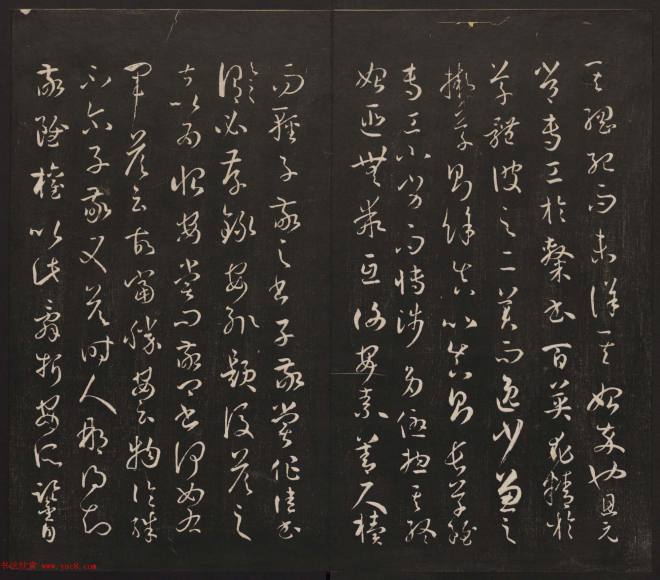 其綱紀而未詳其始卒也且元
常專工於隸書百英尤精於
草體彼之二美而逸少兼之
擬草則餘真比真則長草雖
專工小劣而博涉多優揔其終
始匪無乖互謝安素善尺牘
而輕子敬之書子敬嘗作佳書
與之謂必存錄安輒題後答之
甚以為恨安嘗問敬卿書何如右
軍答云故當勝安云物論殊
不爾子敬又答時人那得知
敬雖權以此辭折安所鑒自
书法欣赏 www.yac8.com